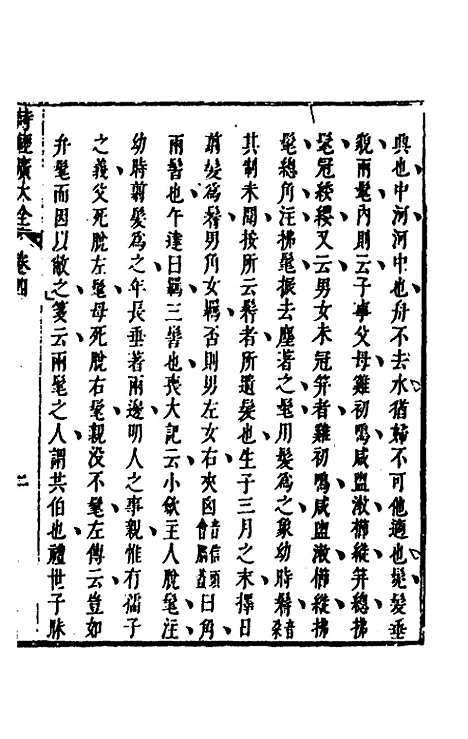 興也中河河中也舟不去水猶婦不可他適也髧髮垂
貌兩髦內則云子事父母雞初鳴咸盥漱櫛縰笄總拂
髦冠緌纓又云男女未冠笄者雞初鳴咸盥漱櫛縰拂
髦總角注拂髦振去塵著之髦用髮為之象幼時鬌音朶
其制未聞按所云鬌者所遺髮也生子三月之末擇日
剪髮為鬌男角女羈否則男左女右夾囟音信頭會腦蓋曰角
兩髻也午達曰羈三髻也喪大記云小歛主人脫髦注
幼時剪髮為之年長垂著兩邊明人之事親惟有孺子
之義父死脫左髦母死脫右髦親没不髦左傳云豈如
弁髦而因以敝之箋云兩髦之人謂共伯也禮世子昧
詩經廣大全 卷四 二